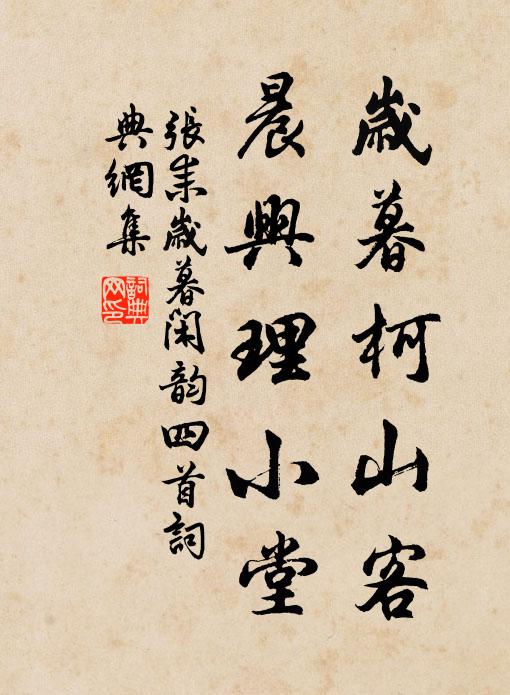 歲暮柯山客
晨興理小堂
張耒歲暮閑韵四首詞
典網集
詞典
网印